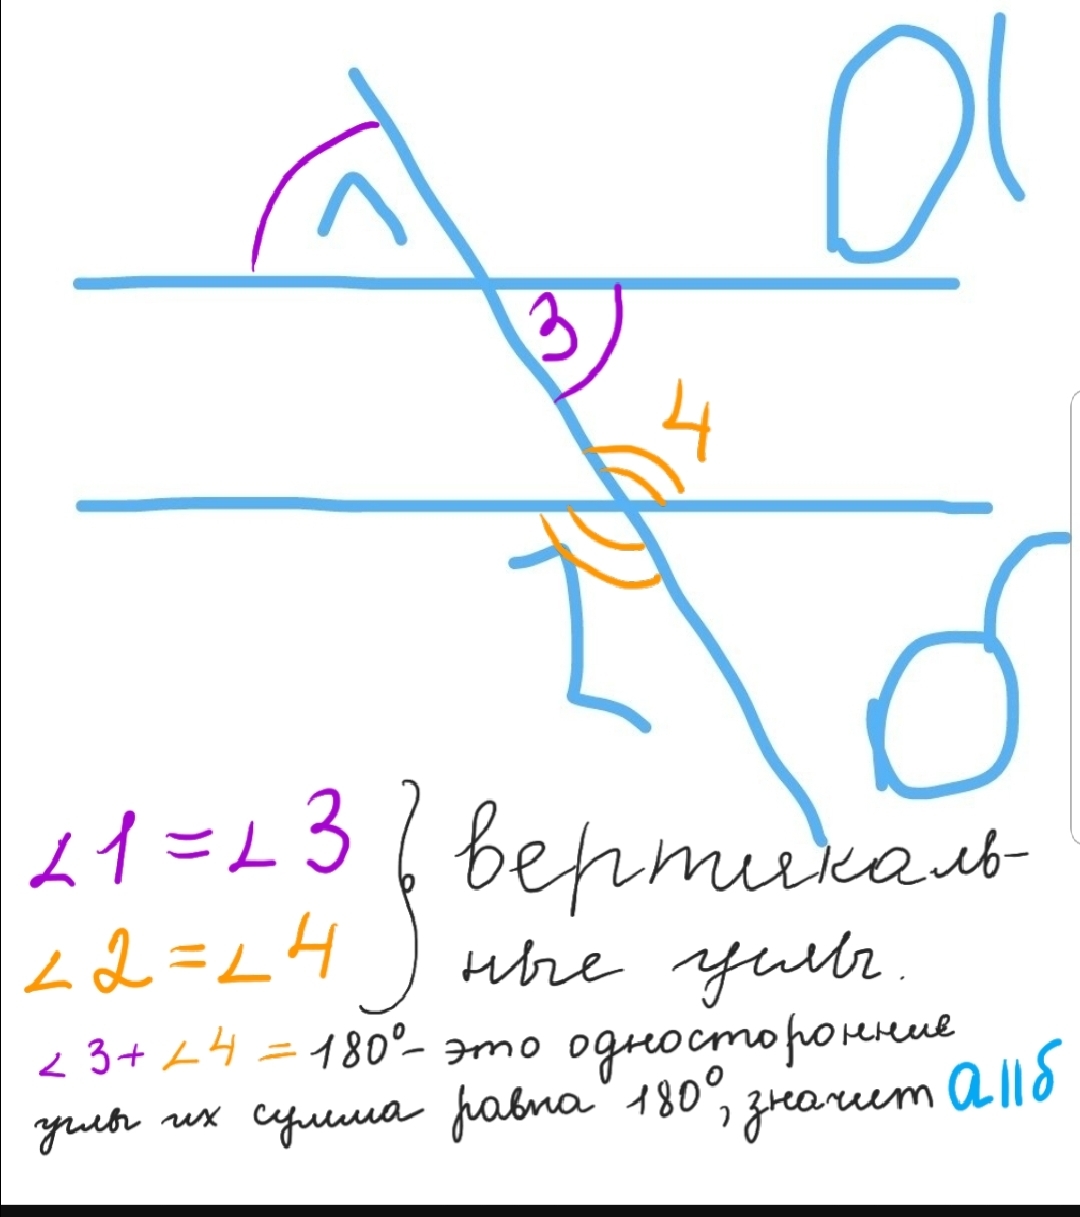 a
1
3
4
2
б
∠1 = ∠3 } вертикаль-
∠2 = ∠4 ные углы.
∠3 + ∠4 = 180° - это односторонние
углы их сумма равна 180°, значит a || б